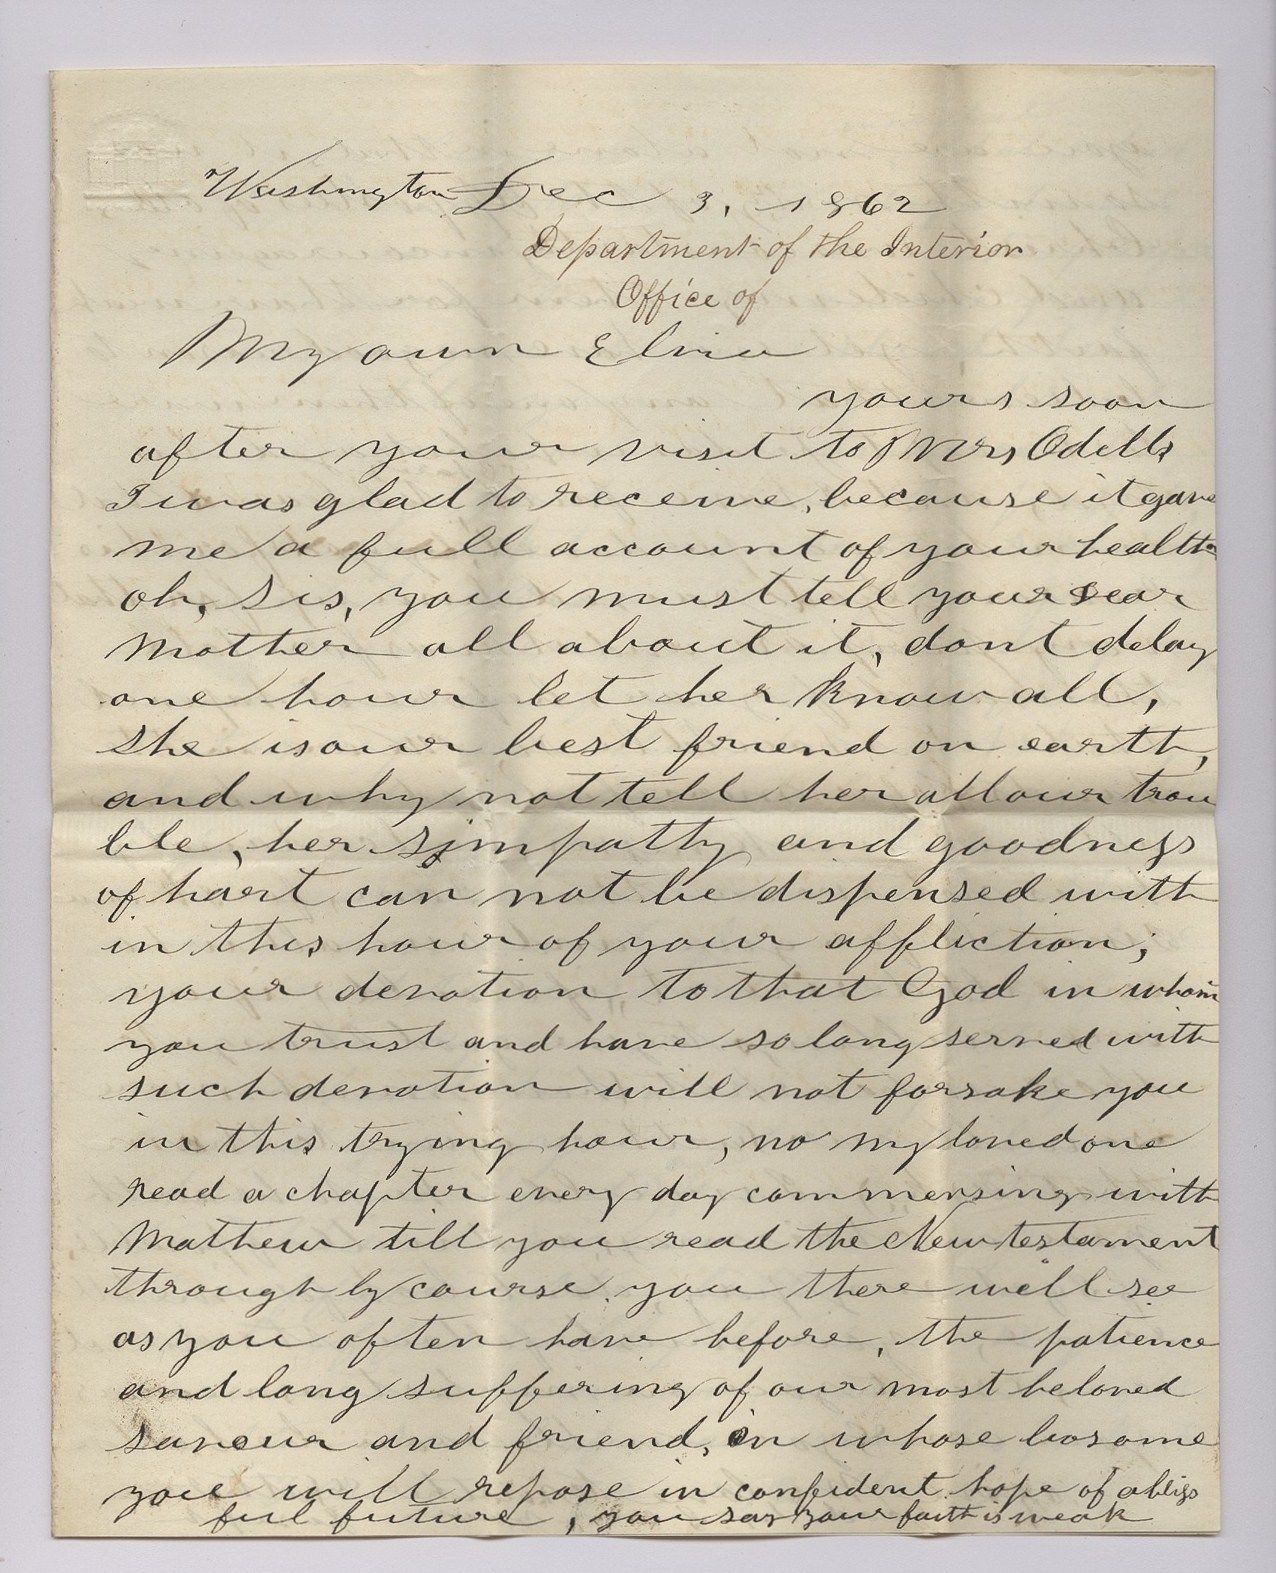 Washington Dec 3, 1862
Department of the Interior
Office of
My own Elvira
yours soon
after your visit to Mrs Odells
I was glad to receive, because it gave
me a full account of your health
oh, Sis, you must tell your dear
Mother all about it, dont delay
one hour let her know all,
she is our best friend on earth,
and why not tell her all our trou
ble, her simpathy and goodness
of hart can not be dispensed with
in this hour of your affliction;
your devotion to that God in whom
you trust and have so long served with
such devotion will not forsake you
in this trying hour, no my loved one
read a chapter every day commensing with
Mathew till you read the New testament
through by course, you there will see
as you often have before, the patience
and long suffering of our most beloved
saveour and friend, in whose bosome
you will repose in confident hope of a bliss
ful future, you say your faith is weak